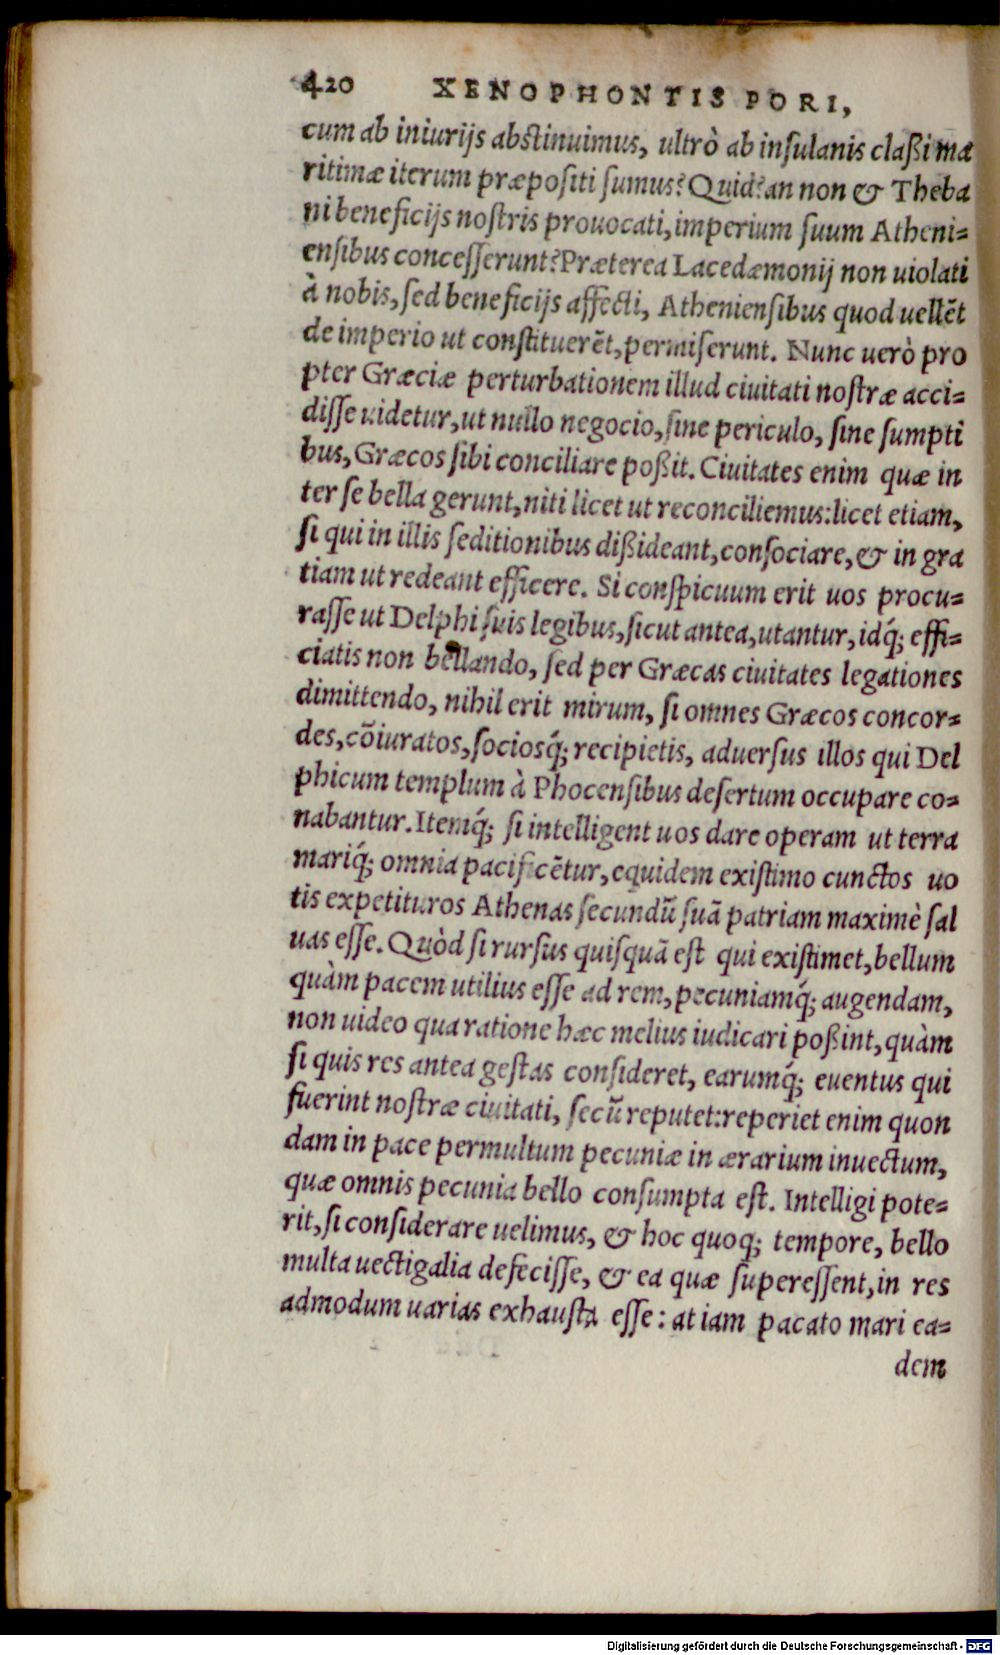 420 XENOPHONTIS PORI,
cum ab iniurijs abstinuimus, ultrò ab insulanis claßi ma
ritimæ iterum præpositi sumus? Quid? an non & Theba
ni beneficijs nostris prouocati, imperium suum Atheni=
ensibus concesserunt? Præterea Lacedæmonij non uiolati
à nobis, sed beneficijs affecti, Atheniensibus quod uellẽt
de imperio ut constituerẽt, permiserunt. Nunc uerò pro
pter Græciæ perturbationem illud ciuitati nostræ acci=
disse uidetur, ut nullo negocio, sine periculo, sine sumpti
bus, Græcos sibi conciliare poßit. Ciuitates enim quæ in
ter se bella gerunt, niti licet ut reconciliemus: licet etiam,
si qui in illis seditionibus dißideant, consociare, & in gra
tiam ut redeant efficere. Si conspicuum erit uos procu=
rasse ut Delphi suis legibus, sicut antea, utantur, idq́; effi=
ciatis non bellando, sed per Græcas ciuitates legationes
dimittendo, nihil erit mirum, si omnes Græcos concor=
des, cõiuratos, sociosq́; recipietis, aduersus illos qui Del
phicum templum à Phocensibus desertum occupare co=
nabantur. Itemq́; si intelligent uos dare operam ut terra
mariq́; omnia pacificẽtur, equidem existimo cunctos uo
tis expetituros Athenas secundũ suã patriam maximè sal
uas esse. Quòd si rursus quisquã est qui existimet, bellum
quàm pacem utilius esse ad rem, pecuniamq́; augendam,
non uideo qua ratione hæc melius iudicari poßint, quàm
si quis res antea gestas consideret, earumq́; euentus qui
fuerint nostræ ciuitati, secũ reputet: reperiet enim quon
dam in pace permultum pecuniæ in ærarium inuectum,
quæ omnis pecunia bello consumpta est. Intelligi pote=
rit, si considerare uelimus, & hoc quoq; tempore, bello
multa uectigalia defecisse, & ea quæ superessent, in res
admodum uarias exhausta esse: at iam pacato mari ea=
dem
Digitalisierung gefördert durch die Deutsche Forschungsgemeinschaft - DFG